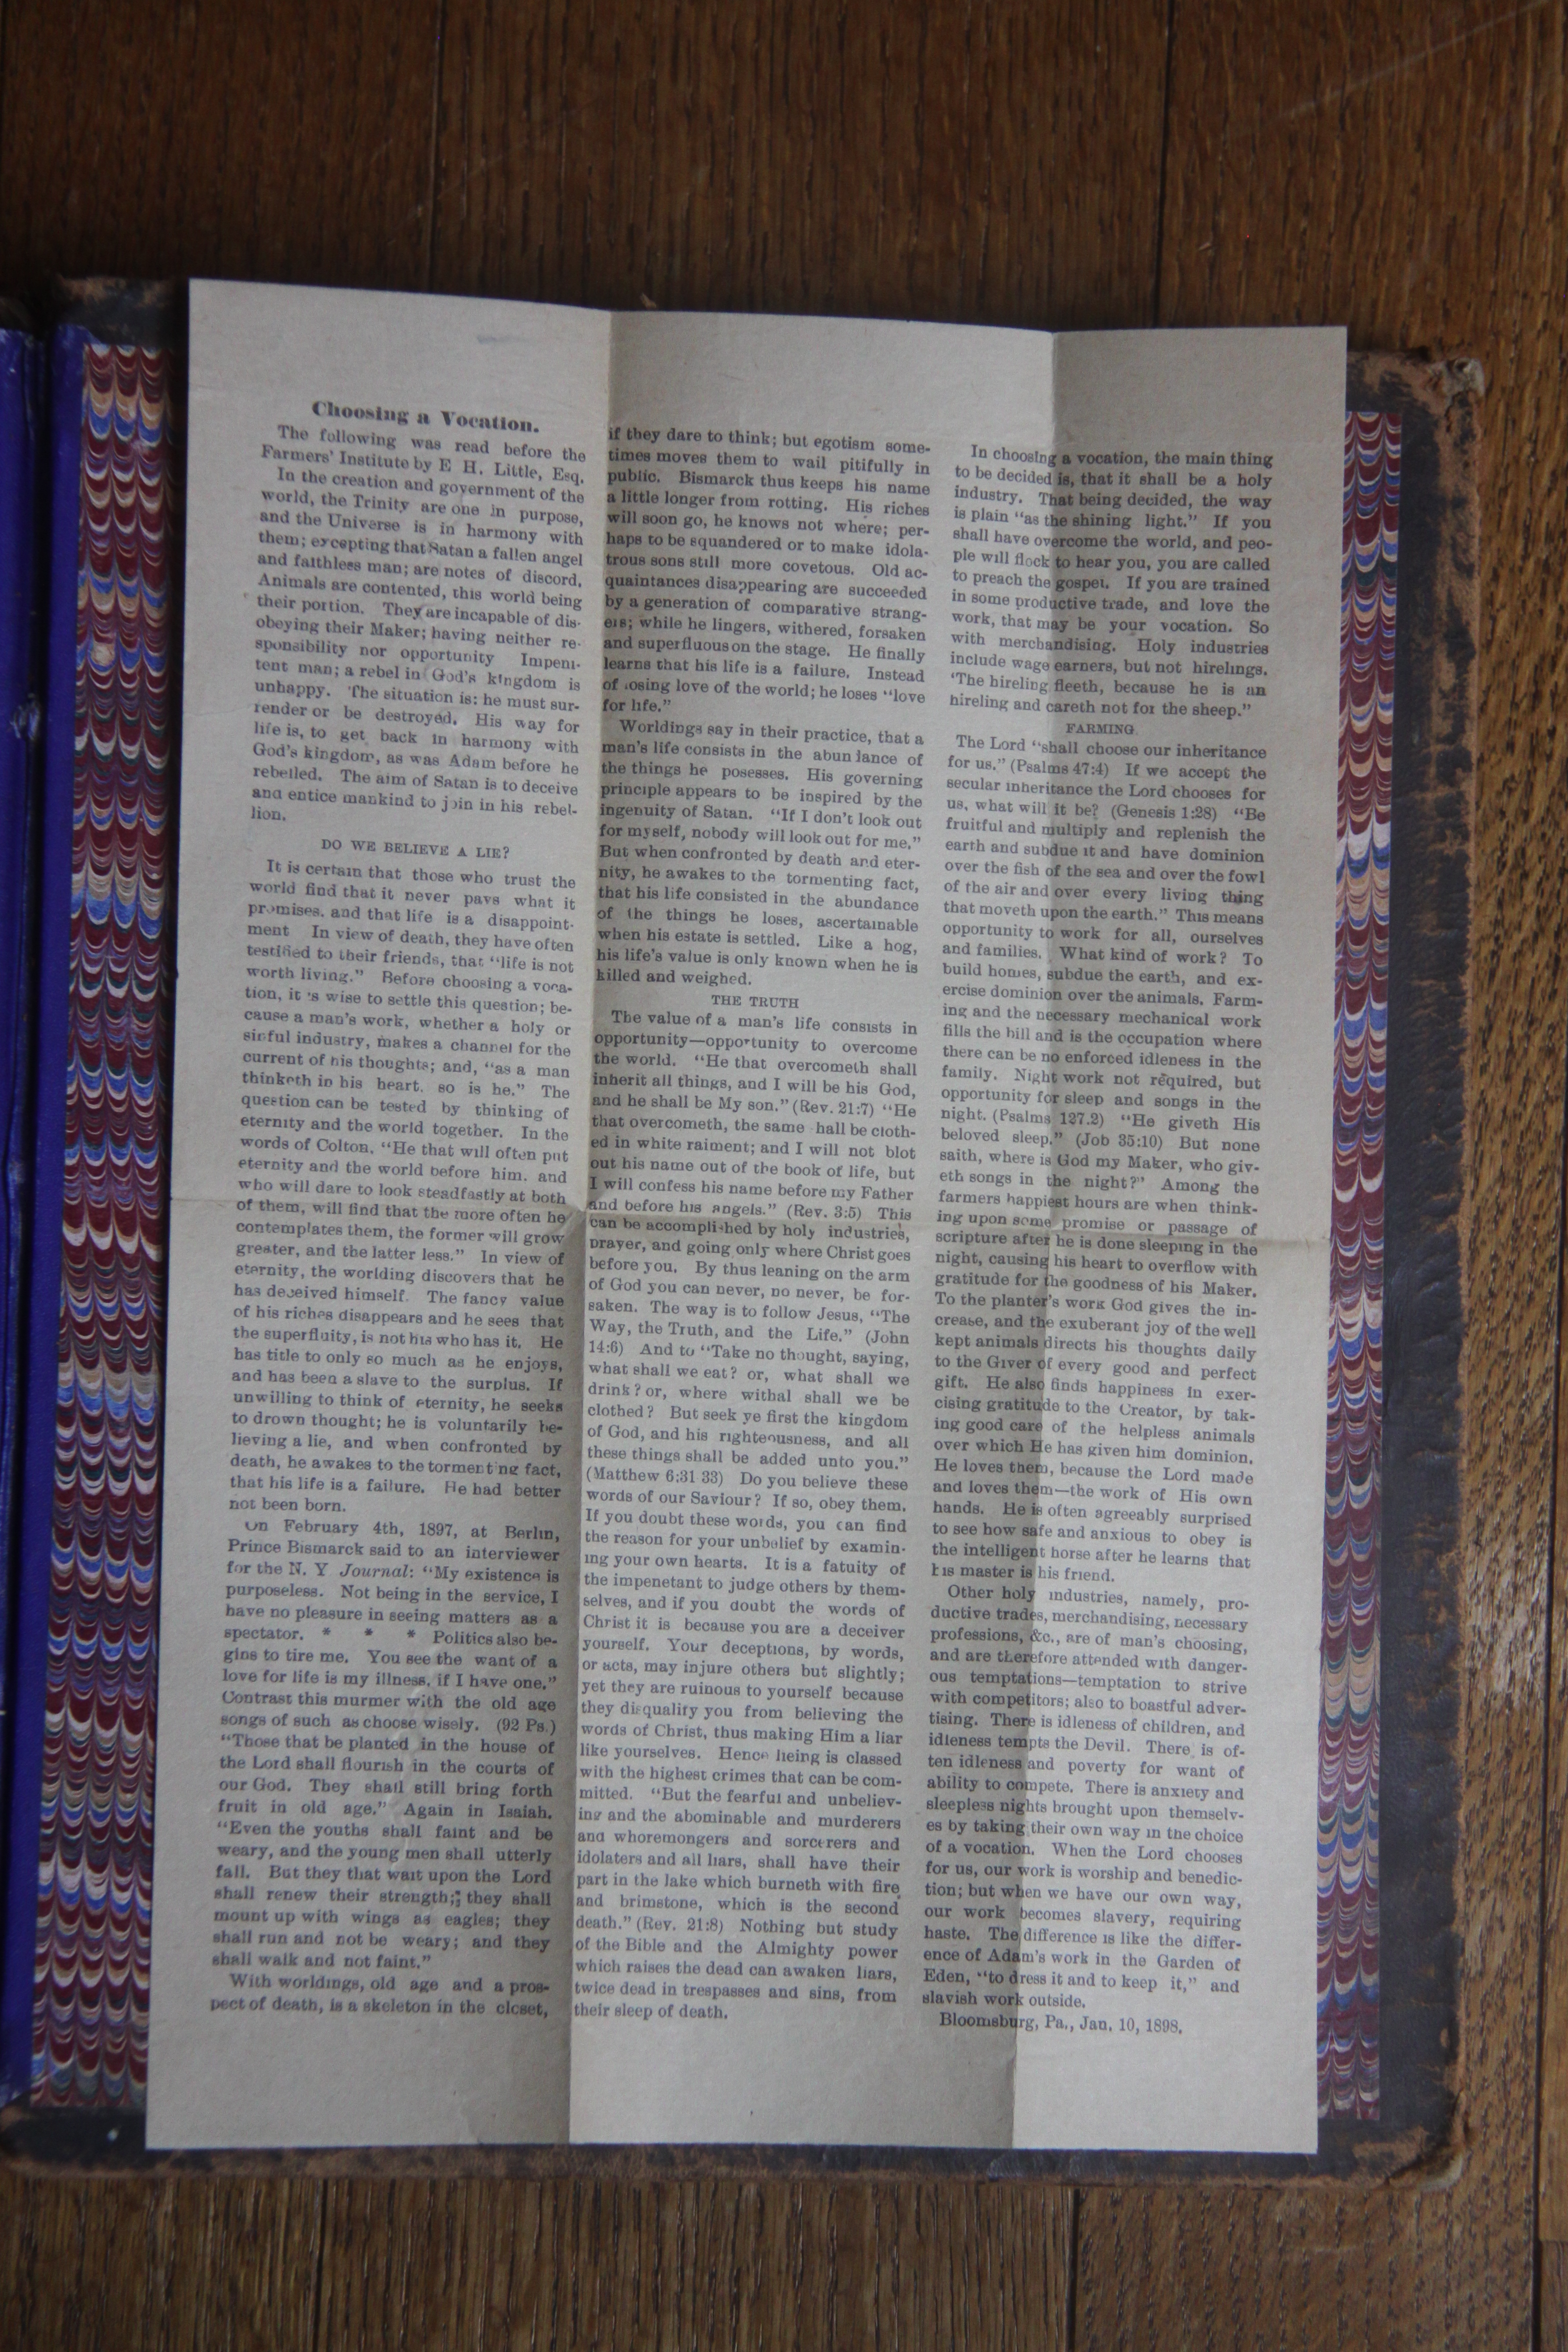 Choosing a Vocation.
The following was read before the
Farmers' Institute by E H. Little, Esq.
In the creation and government of the
world, the Trinity are one in purpose,
and the Universe is in harmony with
them; excepting that Satan a fallen angel
and faithless man; are notes of discord.
Animals are contented, this world being
their portion. They are incapable of dis-
obeying their Maker; having neither re-
sponsibility nor opportunity Impeni-
tent man; a rebel in God's kingdom is
unhappy. The situation is: he must sur-
render or be destroyed. His way for
life is, to get back in harmony with
God's kingdom, as was Adam before he
rebelled. The aim of Satan is to deceive
and entice mankind to join in his rebel-
lion.
DO WE BELIEVE A LIE?
It is certain that those who trust the
world find that it never pays what it
promises, and that life is a disappoint-
ment In view of death, they have often
testified to their friends, that "life is not
worth living." Before choosing a voca-
tion, it is wise to settle this question; be-
cause a man's work, whether a holy or
sinful industry, makes a channel for the
current of his thoughts; and, "as a man
thinketh in his heart, so is he." The
question can be tested by thinking of
eternity and the world together. In the
words of Colton, "He that will often put
eternity and the world before him, and
who will dare to look steadfastly at both
of them, will find that the more often he
contemplates them, the former will grow
greater, and the latter less." In view of
eternity, the worlding discovers that he
has deceived himself. The fancy value
of his riches disappears and he sees that
the superfluity, is not his who has it. He
has title to only so much as he enjoys,
and has been a slave to the surplus. If
unwilling to think of eternity, he seeks
to drown thought; he is voluntarily be-
lieving a lie, and when confronted by
death, he awakes to the tormenting fact,
that his life is a failure. He had better
not been born.
On February 4th, 1897, at Berlin,
Prince Bismarck said to an interviewer
for the N. Y Journal: "My existence is
purposeless. Not being in the service, I
have no pleasure in seeing matters as a
spectator. * * * Politics also be-
gins to tire me. You see the want of a
love for life is my illness, if I have one."
Contrast this murmer with the old age
songs of such as choose wisely. (92 Ps.)
"Those that be planted in the house of
the Lord shall flourish in the courts of
our God. They shall still bring forth
fruit in old age." Again in Isaiah.
"Even the youths shall faint and be
weary, and the young men shall utterly
fall. But they that wait upon the Lord
shall renew their strength;; they shall
mount up with wings as eagles; they
shall run and not be weary; and they
shall walk and not faint."
With worldings, old age and a pros-
pect of death, is a skeleton in the closet,
if they dare to think; but egotism some-
times moves them to wail pitifully in
public. Bismarck thus keeps his name
a little longer from rotting. His riches
will soon go, he knows not where; per-
haps to be squandered or to make idola-
trous sons still more covetous. Old ac-
quaintances disappearing are succeeded
by a generation of comparative strang-
ers; while he lingers, withered, forsaken
and superfluous on the stage. He finally
learns that his life is a failure. Instead
of losing love of the world; he loses "love
for life."
Worldings say in their practice, that a
man's life consists in the abundance of
the things he posesses. His governing
principle appears to be inspired by the
ingenuity of Satan. "If I don't look out
for myself, nobody will look out for me."
But when confronted by death and eter-
nity, he awakes to the tormenting fact,
that his life consisted in the abundance
of the things he loses, ascertainable
when his estate is settled. Like a hog,
his life's value is only known when he is
killed and weighed.
THE TRUTH
The value of a man's life consists in
opportunity—opportunity to overcome
the world. "He that overcometh shall
inherit all things, and I will be his God,
and he shall be My son." (Rev. 21:7) "He
that overcometh, the same hall be cloth-
ed in white raiment; and I will not blot
out his name out of the book of life, but
I will confess his name before my Father
and before his angels." (Rev. 3:5) This
can be accomplished by holy industries,
prayer, and going only where Christ goes
before you. By thus leaning on the arm
of God you can never, no never, be for-
saken. The way is to follow Jesus, "The
Way, the Truth, and the Life." (John
14:6) And to "Take no thought, saying,
what shall we eat? or, what shall we
drink? or, where withal shall we be
clothed? But seek ye first the kingdom
of God, and his righteousness, and all
these things shall be added unto you."
(Matthew 6:31 33) Do you believe these
words of our Saviour? If so, obey them.
If you doubt these words, you can find
the reason for your unbelief by examin-
ing your own hearts. It is a fatuity of
the impenetant to judge others by them-
selves, and if you doubt the words of
Christ it is because you are a deceiver
yourself. Your deceptions, by words,
or acts, may injure others but slightly;
yet they are ruinous to yourself because
they disqualify you from believing the
words of Christ, thus making Him a liar
like yourselves. Hence lieing is classed
with the highest crimes that can be com-
mitted. "But the fearful and unbeliev-
ing and the abominable and murderers
and whoremongers and sorcerers and
idolaters and all liars, shall have their
part in the lake which burneth with fire
and brimstone, which is the second
death." (Rev. 21:8) Nothing but study
of the Bible and the Almighty power
which raises the dead can awaken liars,
twice dead in trespasses and sins, from
their sleep of death.
In choosing a vocation, the main thing
to be decided is, that it shall be a holy
industry. That being decided, the way
is plain "as the shining light." If you
shall have overcome the world, and peo-
ple will flock to hear you, you are called
to preach the gospel. If you are trained
in some productive trade, and love the
work, that may be your vocation. So
with merchandising. Holy industries
include wage earners, but not hirelings.
'The hireling fleeth, because he is an
hireling and careth not for the sheep."
FARMING
The Lord "shall choose our inheritance
for us." (Psalms 47:4) If we accept the
secular inheritance the Lord chooses for
us, what will it be? (Genesis 1:28) "Be
fruitful and multiply and replenish the
earth and subdue it and have dominion
over the fish of the sea and over the fowl
of the air and over every living thing
that moveth upon the earth." This means
opportunity to work for all, ourselves
and families. What kind of work? To
build homes, subdue the earth, and ex-
ercise dominion over the animals. Farm-
ing and the necessary mechanical work
fills the bill and is the occupation where
there can be no enforced idleness in the
family. Night work not required, but
opportunity for sleep and songs in the
night. (Psalms 127.2) "He giveth His
beloved sleep." (Job 35:10) But none
saith, where is God my Maker, who giv-
eth songs in the night?" Among the
farmers happiest hours are when think-
ing upon some promise or passage of
scripture after he is done sleeping in the
night, causing his heart to overflow with
gratitude for the goodness of his Maker.
To the planter's work God gives the in-
crease, and the exuberant joy of the well
kept animals directs his thoughts daily
to the Giver of every good and perfect
gift. He also finds happiness in exer-
cising gratitude to the Creator, by tak-
ing good care of the helpless animals
over which He has given him dominion.
He loves them, because the Lord made
and loves them—the work of His own
hands. He is often agreeably surprised
to see how safe and anxious to obey is
the intelligent horse after he learns that
his master is his friend.
Other holy industries, namely, pro-
ductive trades, merchandising, necessary
professions, &c., are of man's choosing,
and are therefore attended with danger-
ous temptations—temptation to strive
with competitors; also to boastful adver-
tising. There is idleness of children, and
idleness tempts the Devil. There is of-
ten idleness and poverty for want of
ability to compete. There is anxiety and
sleepless nights brought upon themselv-
es by taking their own way in the choice
of a vocation. When the Lord chooses
for us, our work is worship and benedic-
tion; but when we have our own way,
our work becomes slavery, requiring
haste. The difference is like the differ-
ence of Adam's work in the Garden of
Eden, "to dress it and to keep it," and
slavish work outside.
Bloomsburg, Pa., Jan. 10, 1898.